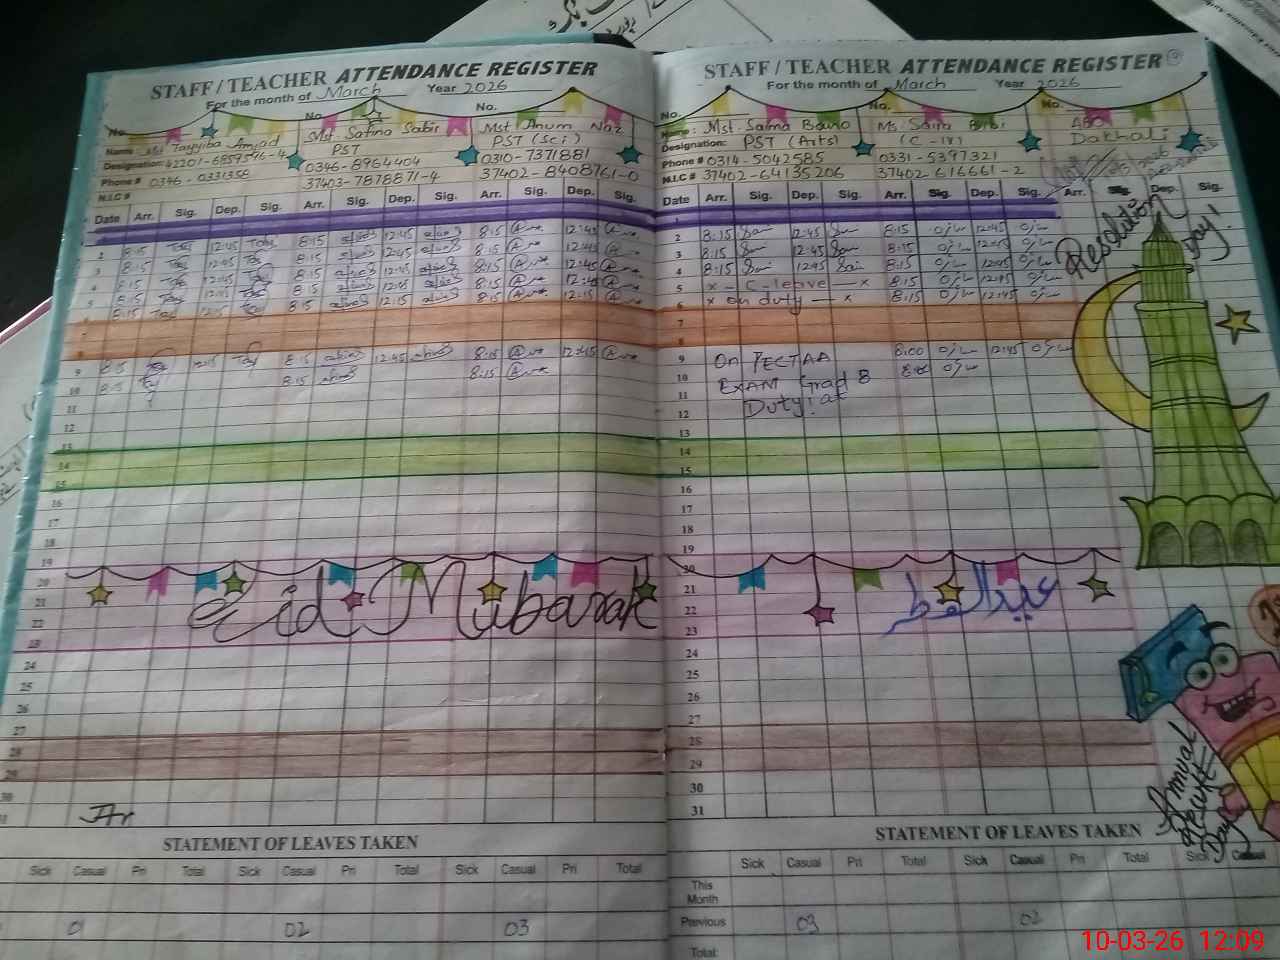 STAFF / TEACHER ATTENDANCE REGISTER
For the month of March Year 2026
No. No. No.
Name: Ms Tayyiba Amjad Mst Safina Sabir Mst Anum Naz
Designation: PST PST (Sci)
42201-6859596-4 0346-8964404 0310-7371881
Phone # 0346-0331358 37403-7878871-4 37402-8408761-0
N.I.C #
Date Arr. Sig. Dep. Sig. Arr. Sig. Dep. Sig. Arr. Sig. Dep. Sig.
1
2 8:15 12:45 8:15 12:45 8:15 12:45
3 8:15 12:45 8:15 12:45 8:15 12:45
4 8:15 12:45 8:15 12:45 8:15 12:45
5 8:15 12:45 8:15 12:45 8:15 12:45
6 8:15 12:15 8:15 12:15 8:15 12:15
7
8
9 8:15 12:45 8:15 12:45 8:15 12:45
10 8:15 8:15 8:15
11
12
13
14
15
16
17
18
19
20
21
22
23
Eid Mubarak
24
25
26
27
28
29
30
31
STATEMENT OF LEAVES TAKEN
Sick Casual Pri Total Sick Casual Pri Total Sick Casual Pri Total
01 02 03
STAFF / TEACHER ATTENDANCE REGISTER
For the month of March Year 2026
No. No. No.
Name: Mst. Saima Bano Ms. Saira Bibi
Designation: PST (Arts) (C-IV) Dakhali
Phone # 0314-5042585 0331-5397321
N.I.C # 37402-64135206 37402 616661-2
Date Arr. Sig. Dep. Sig. Arr. Sig. Dep. Sig. Arr. Sig. Dep. Sig.
1
2 8:15 12:45 8:15 12:45
3 8:15 12:45 8:15 12:45
4 8:15 12:45 8:15 12:45
5 x - C-leave - x 8:15 12:45
6 x on duty - x 8:15 12:45
7
8
9 On PECTAA 8:00 12:45
10 Exam Grad 8
11 Duty! at
12
13
14
15
16
17
18
19
20
21
22
23
عید الفطر
24
25
26
27
28
29
30
31
Resolution Day!
Annual Result Day
STATEMENT OF LEAVES TAKEN
Sick Casual Pri Total Sick Casual Pri Total Sick Casual
This Month
Previous 03 02
Total:
10-03-26 12:09